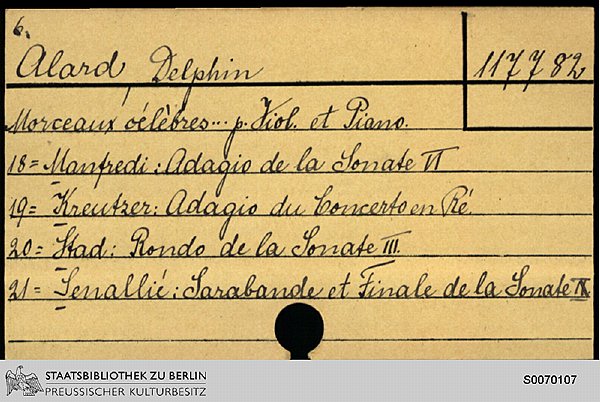 6.
Alard, Delphin 117782
Morceaux célèbres... p. Viol. et Piano.
18= Manfredi: Adagio de la Sonate VI
19= Kreutzer: Adagio du Concerto en Ré.
20= Stad: Rondo de la Sonate III.
21= Senallié: Sarabande et Finale de la Sonate IX
STAATSBIBLIOTHEK ZU BERLIN
PREUSSISCHER KULTURBESITZ
S0070107